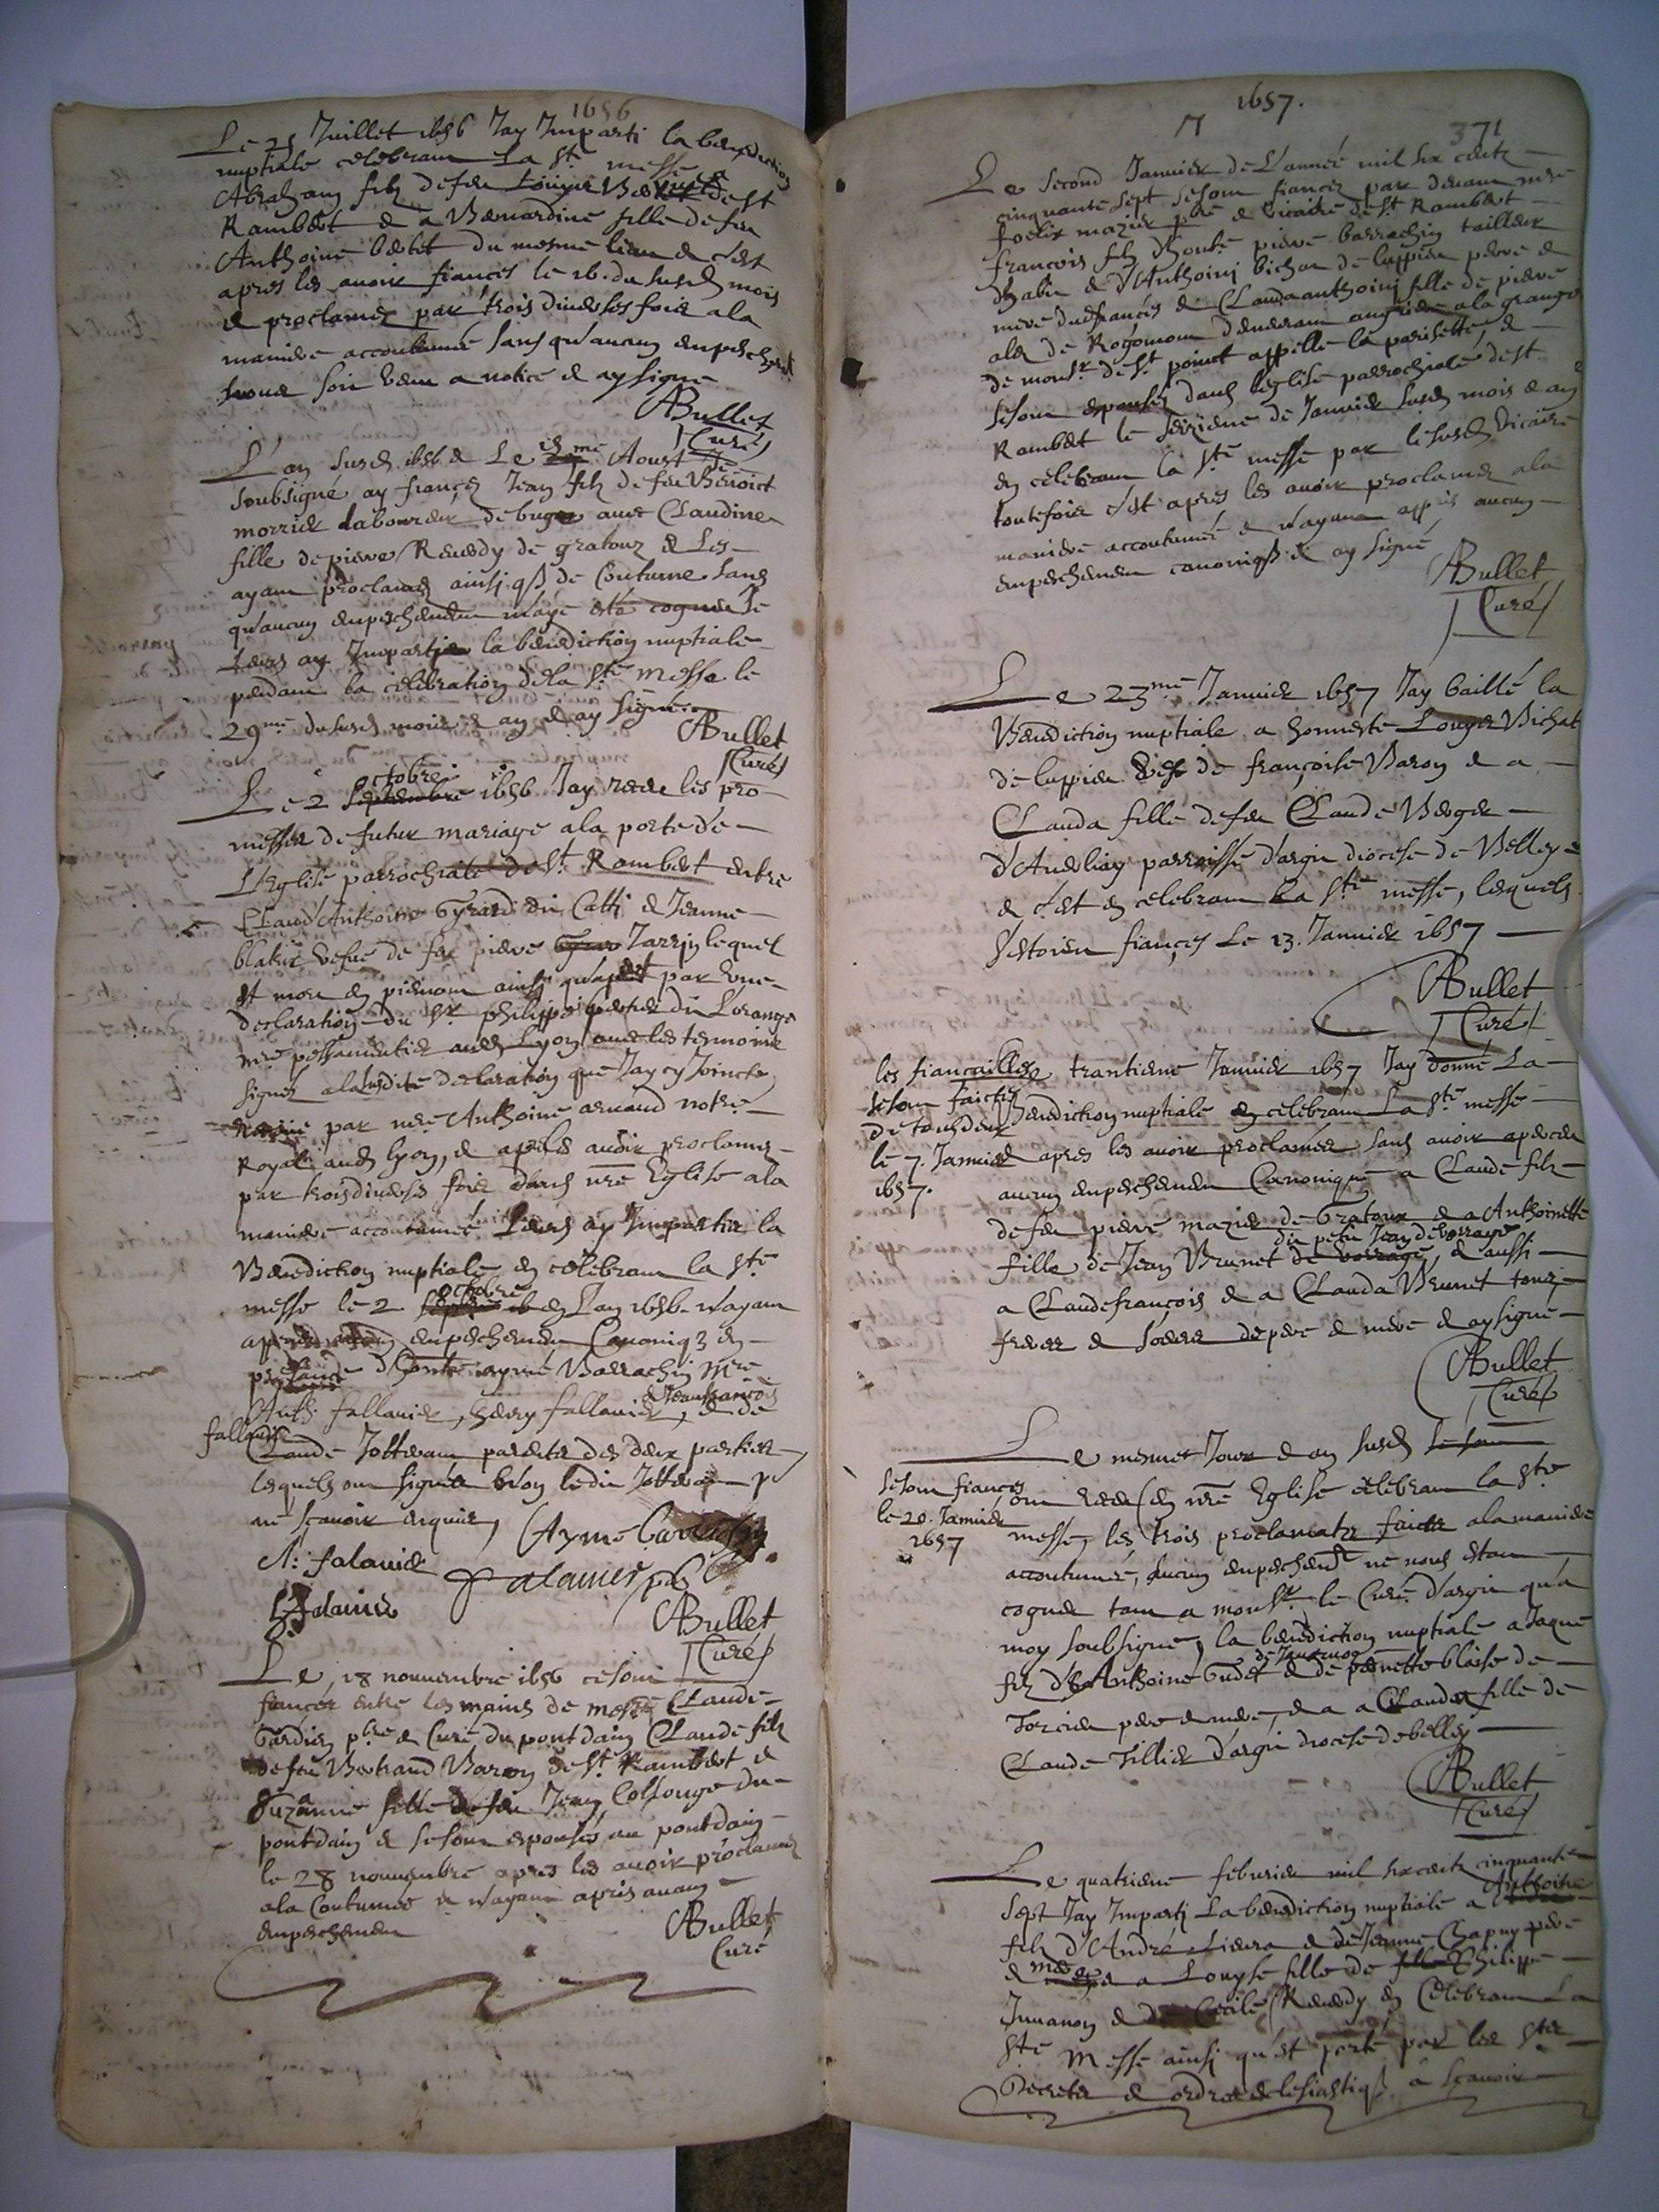 1656
Le 25 Juillet 1656 Jay Imparti la benediction
nuptiale celebrant la ste messe a
Abraham filz de feu de st
Rambert & a Bernardine fille de feu
Anthoine bertet du mesme lieu & c'est
apres les avoir fiances le 16. du susd mois
& proclamez par trois diverses fois a la
maniere accoutumée sans qu'aucun empeschemt
soit venu a notice & ay signe
ABullet
Curé
L'an susd. 1656 & Le Aoust Je
soubsigné ay fiancez Jean filz de feu Benoict
morrier laboureur de avec Claudine
fille de pierre Reverdy de gratoux & Les
ayant proclamez ainsi qs de Coutume sans
qu'aucun empeschement m'aye esté cogneu Je
leurs ay Impartie la benediction nuptiale
pendant la celebration de la ste messe le
29me du susd mois & an & ay signé
ABullet
Curé
octobre
Le 2 septembre 1656 Jay receu les pro
messes de futur mariage a la porte de
L'Eglise parrochiale de st. Rambert entre
Claud'Anthoine Gyrard dit Catti & Jeanne
vefue de feu pierre Jarrin lequel
est mort en piemont ainsy qu'apert par une
declaration du sr philippe dit L'orange
mre passamentier aud Lyon avec les tesmoins
signez a la susdite declaration que Jay cy Joincte,
par mre Anthoine arnaud notre
Royal aud lyon, & apres les avoir proclamez
par trois diverses fois dans nre Eglise a la
maniere accoutumée Leurs ay Impartir la
Benediction nuptiale en celebrant la ste
octobre
messe le 2 en L'an 1656. n'ayant
apperceu aucun empeschement Canoniq3 en
presence d'honte aymé Barrachin Mre
& Jeanfrançois
Anth. fallavier, henry fallavier, & de
fallavier
Claude Jottevant parents des deux parties
lesquels ont signés sinon ledit Jottevant pr
ne scavoir enquis, Aymé Barrachin
A: falavier falavier
falavier
ABullet
Curé
Le, 18 nouvembre 1656 ce sont
fiancez entre les mains de messre Claude
Gardien pbre & Curé du pontdain Claude filz
de feu Bertrand Baron de st Rambert &
Suzanne fille de feu Jean Collonge du
pontdain & se sont espousés au pontdain
le 28 nouvembre apres les avoir proclamez
a la Coutumée & n'ayant apris aucun
empeschement
ABullet
Curé
1657.
371
Le second Janvier de L'année mil six centz
cinquante sept se sont fiancez par devant mre
foelix mazier pbre & vicaire de st Rambert
françois filz d'honte pierre barrachin tailleur
d'habit & d'Anthoini bichat de luppieu pere &
mere dud françois & Claudaanthoini fille de pierre
de Rogomont demeurant a la grange
de monsr. de st point appellé la parisette, &
se sont espousés dans l'eglise parrochiale de st
Rambert le seizieme de Janvier susd mois & an
en celebrant la ste messe par le susd vicaire
toutefois c'est apres les avoir proclamez a la
maniere accoutumée & n'ayant appris aucun
empeschement canoniqs & ay signé
ABullet
Curé
Le 23me Janvier 1657 Jay baillé la
Benediction nuptiale a honneste Bichat
de luppieu de françoise Baron & a
Clauda fille de feu Claude Berger
d'Averliay parroisse d'argis diocese de Belley
& c'est en celebrant la ste messe, lesquels
s'estoient fiancés Le 13. Janvier 1657
ABullet
Curé
les fiancailles
se sont faictes
de tous deux
le 7. Janvier
1657.
trantieme Janvier 1657 Jay donné La
Benediction nuptiale en celebrant La ste messe
apres les avoir proclamés sans avoir aperceu
aucun empeschement Canonique a Claude filz
de feu pierre mazier de Gratoux & a Anthoinette
dit petit Jean de vorrage
fille de Jean Brunet de vorrage, & aussi
a Claudefrançois & a Clauda Brunet touz
freres & soeurs de pere & mere & ay signé
ABullet
Curé
Le mesmes Jour & an susd se sont
se sont fiances
le 20. Janvier
1657
ont receu en nre Eglise celebrant la ste
messe, les trois proclamats faicts a la maniere
accoutumée, Aucun empeschemt ne nous estant
cogneu tant a monsr. le Curé d'argis qu'a
moy soubsigné, la benediction nuptiale a Jaque
filz d'Anthoine Gudet & de pernette blaise de
Torcieu pere & mere, & a Clauda fille de
Claude Tillier d'argis diocese de belley
ABullet
Curé
Le quatrieme febvrier mil six centz cinquante
sept Jay Imparti La benediction nuptiale a Anthoine
filz d'André Lievra & de Jeanne Chapuy pere
& mere & a Louyse fille de Philippe
Juvanon & de Cecile Reverdy en Celebrant La
ste Messe ainsi qu'est porté par les sts
Decrets & ordres eclesiastiqs a scavoir